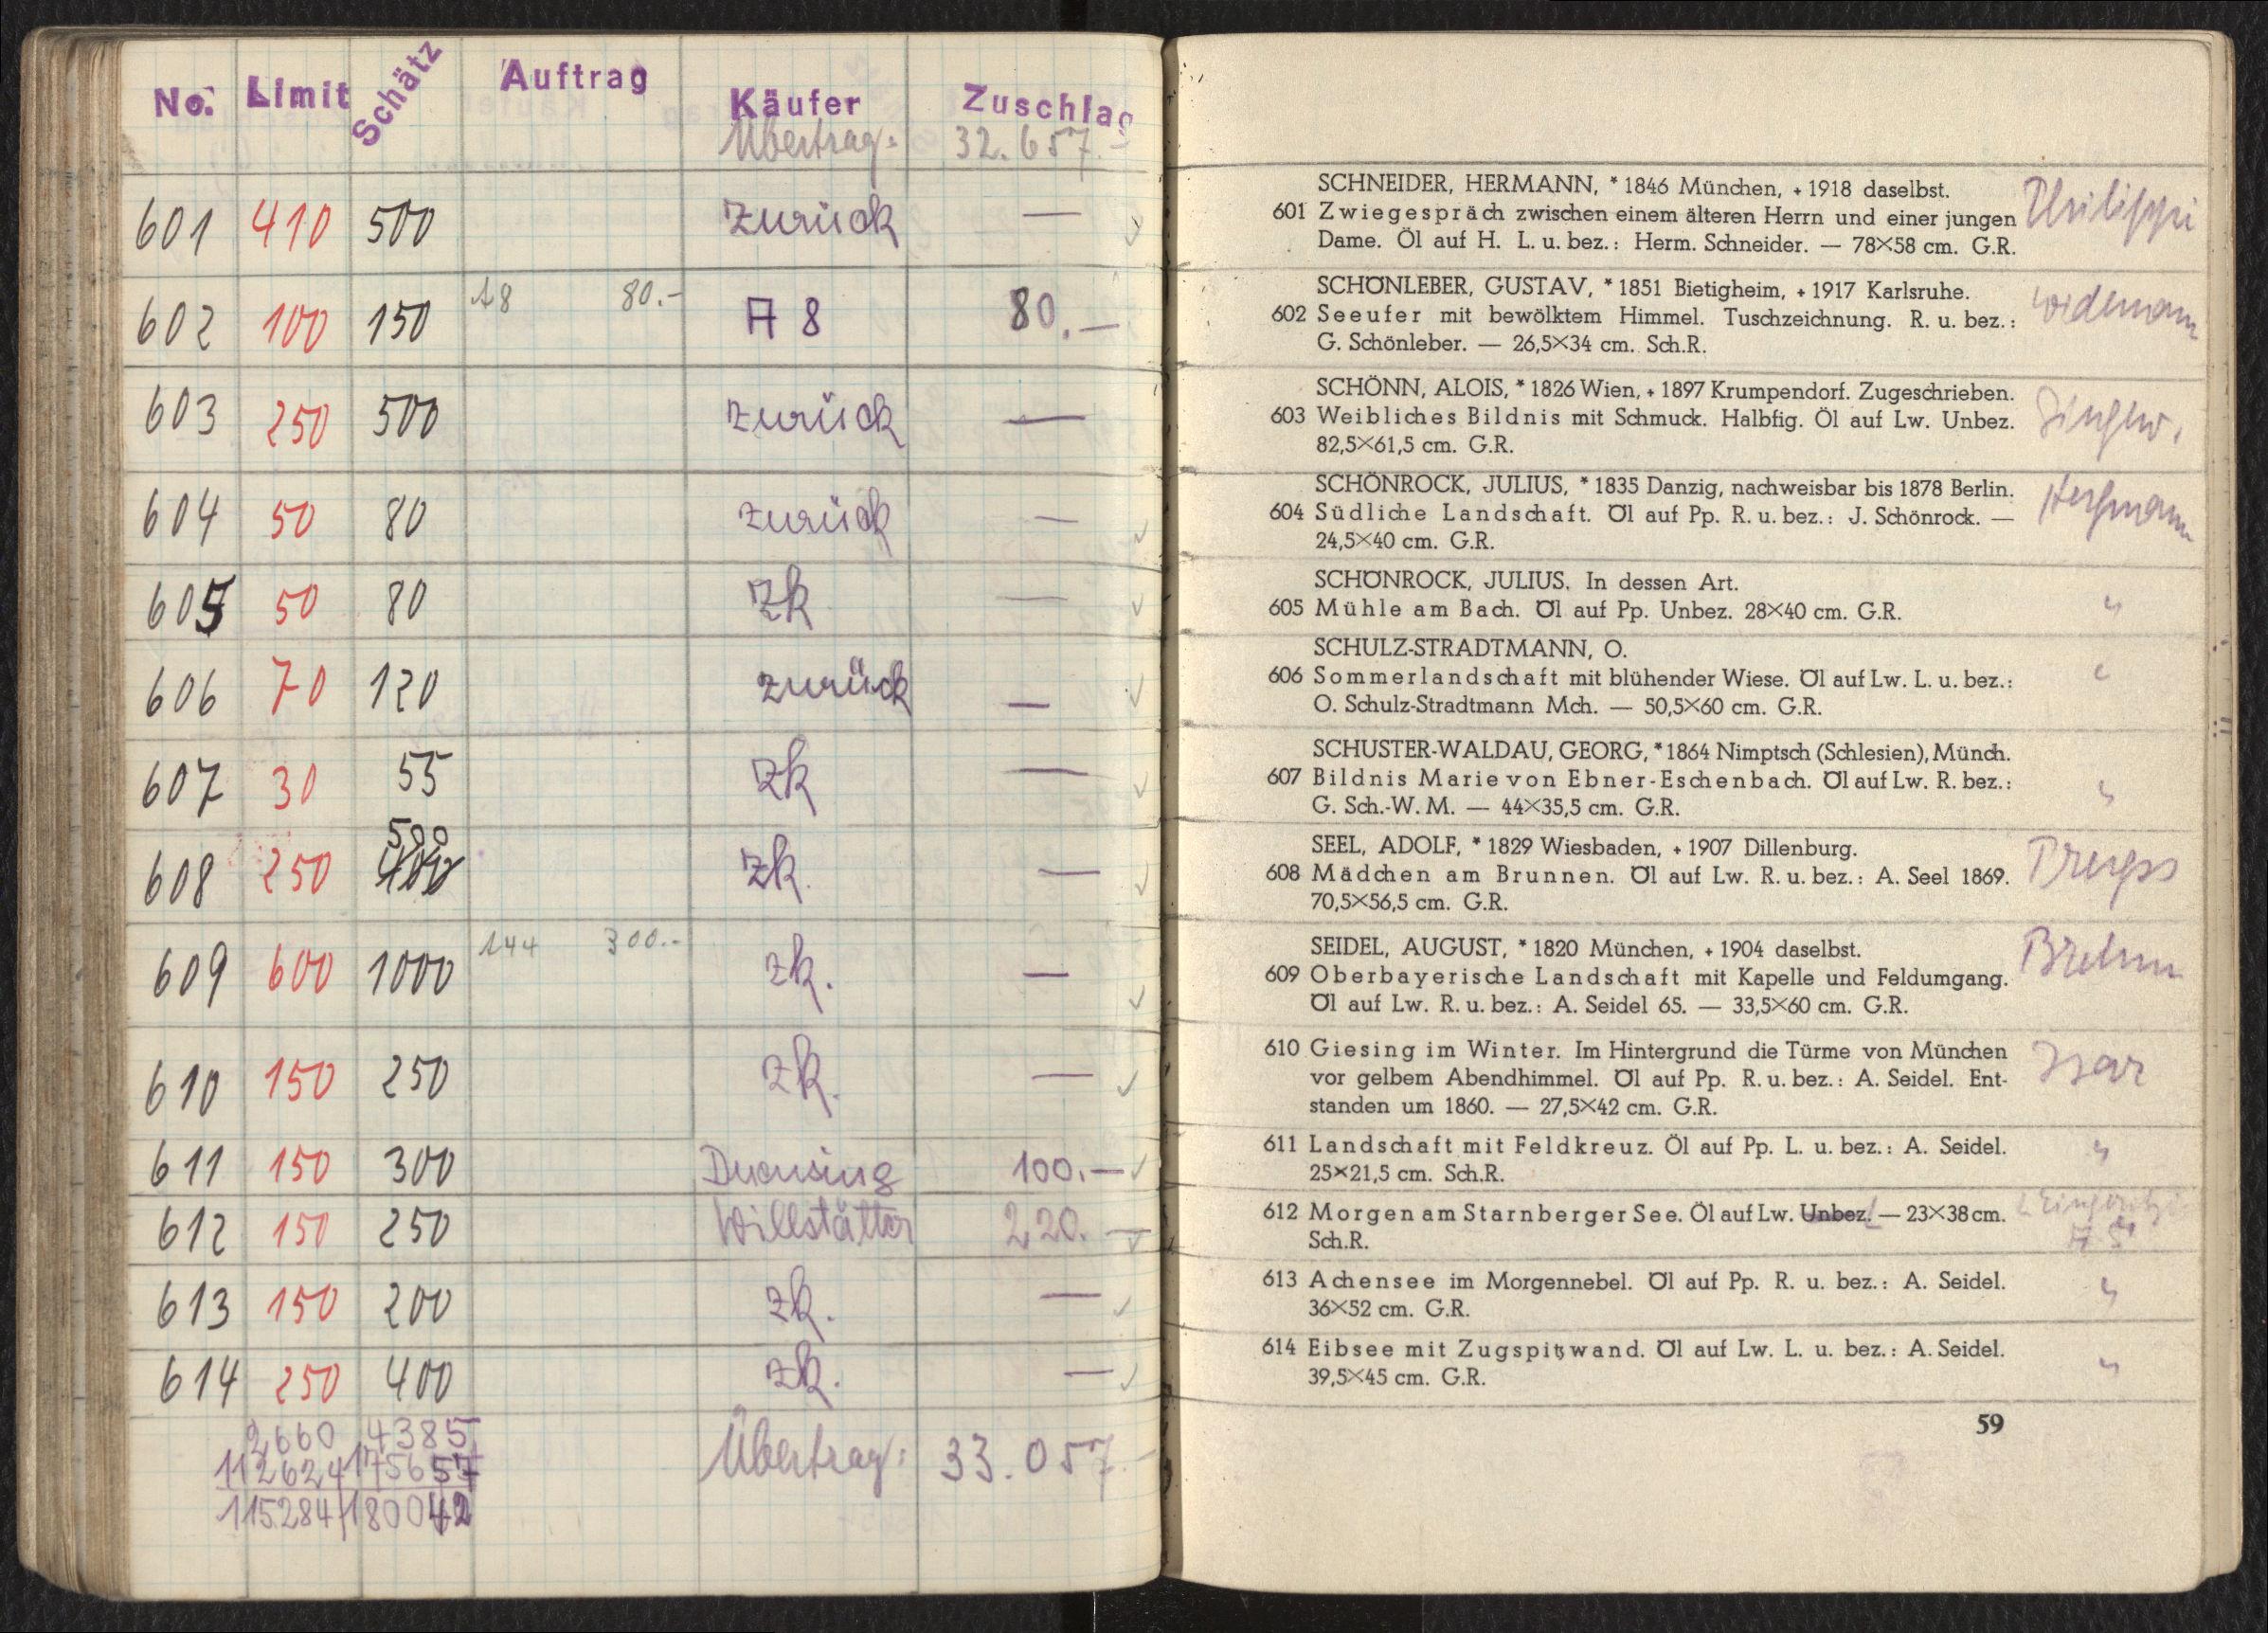 No. Limit Schätz Auftrag Käufer Zuschlag
Übertrag: 32.657.-
601 410 500 zurück —
602 100 150 A8 80.- A 8 80.—
603 250 500 zurück —
604 50 80 zurück —
605 50 80 zk —
606 70 120 zurück —
607 30 55 zk —
608 250 500 400 zk. —
609 600 1000 144 300.- zk. —
610 150 250 zk. —
611 150 300 100.—
612 150 250 Willstätter 220.—
613 150 200 zk. —
614 250 400 zk. —
2660 4385
112624 175657
115284 180042
Übertrag: 33.057.-
SCHNEIDER, HERMANN, * 1846 München, + 1918 daselbst.
601 Zwiegespräch zwischen einem älteren Herrn und einer jungen Philippi
Dame. Öl auf H. L. u. bez.: Herm. Schneider. — 78×58 cm. G.R.
SCHÖNLEBER, GUSTAV, * 1851 Bietigheim, + 1917 Karlsruhe.
602 Seeufer mit bewölktem Himmel. Tuschzeichnung. R. u. bez.: Widemann
G. Schönleber. — 26,5×34 cm. Sch.R.
SCHÖNN, ALOIS, * 1826 Wien, + 1897 Krumpendorf. Zugeschrieben.
603 Weibliches Bildnis mit Schmuck. Halbfig. Öl auf Lw. Unbez.
82,5×61,5 cm. G.R.
SCHÖNROCK, JULIUS, * 1835 Danzig, nachweisbar bis 1878 Berlin.
604 Südliche Landschaft. Öl auf Pp. R. u. bez.: J. Schönrock. —
24,5×40 cm. G.R.
SCHÖNROCK, JULIUS. In dessen Art.
605 Mühle am Bach. Öl auf Pp. Unbez. 28×40 cm. G.R. "
SCHULZ-STRADTMANN, O.
606 Sommerlandschaft mit blühender Wiese. Öl auf Lw. L. u. bez.: "
O. Schulz-Stradtmann Mch. — 50,5×60 cm. G.R.
SCHUSTER-WALDAU, GEORG, * 1864 Nimptsch (Schlesien), Münch.
607 Bildnis Marie von Ebner-Eschenbach. Öl auf Lw. R. bez.: "
G. Sch.-W. M. — 44×35,5 cm. G.R.
SEEL, ADOLF, * 1829 Wiesbaden, + 1907 Dillenburg.
608 Mädchen am Brunnen. Öl auf Lw. R. u. bez.: A. Seel 1869.
70,5×56,5 cm. G.R.
SEIDEL, AUGUST, * 1820 München, + 1904 daselbst.
609 Oberbayerische Landschaft mit Kapelle und Feldumgang.
Öl auf Lw. R. u. bez.: A. Seidel 65. — 33,5×60 cm. G.R.
610 Giesing im Winter. Im Hintergrund die Türme von München Isar
vor gelbem Abendhimmel. Öl auf Pp. R. u. bez.: A. Seidel. Ent-
standen um 1860. — 27,5×42 cm. G.R.
611 Landschaft mit Feldkreuz. Öl auf Pp. L. u. bez.: A. Seidel. "
25×21,5 cm. Sch.R.
612 Morgen am Starnberger See. Öl auf Lw. Unbez. — 23×38 cm.
Sch.R.
613 Achensee im Morgennebel. Öl auf Pp. R. u. bez.: A. Seidel. "
36×52 cm. G.R.
614 Eibsee mit Zugspitzwand. Öl auf Lw. L. u. bez.: A. Seidel. "
39,5×45 cm. G.R.
59